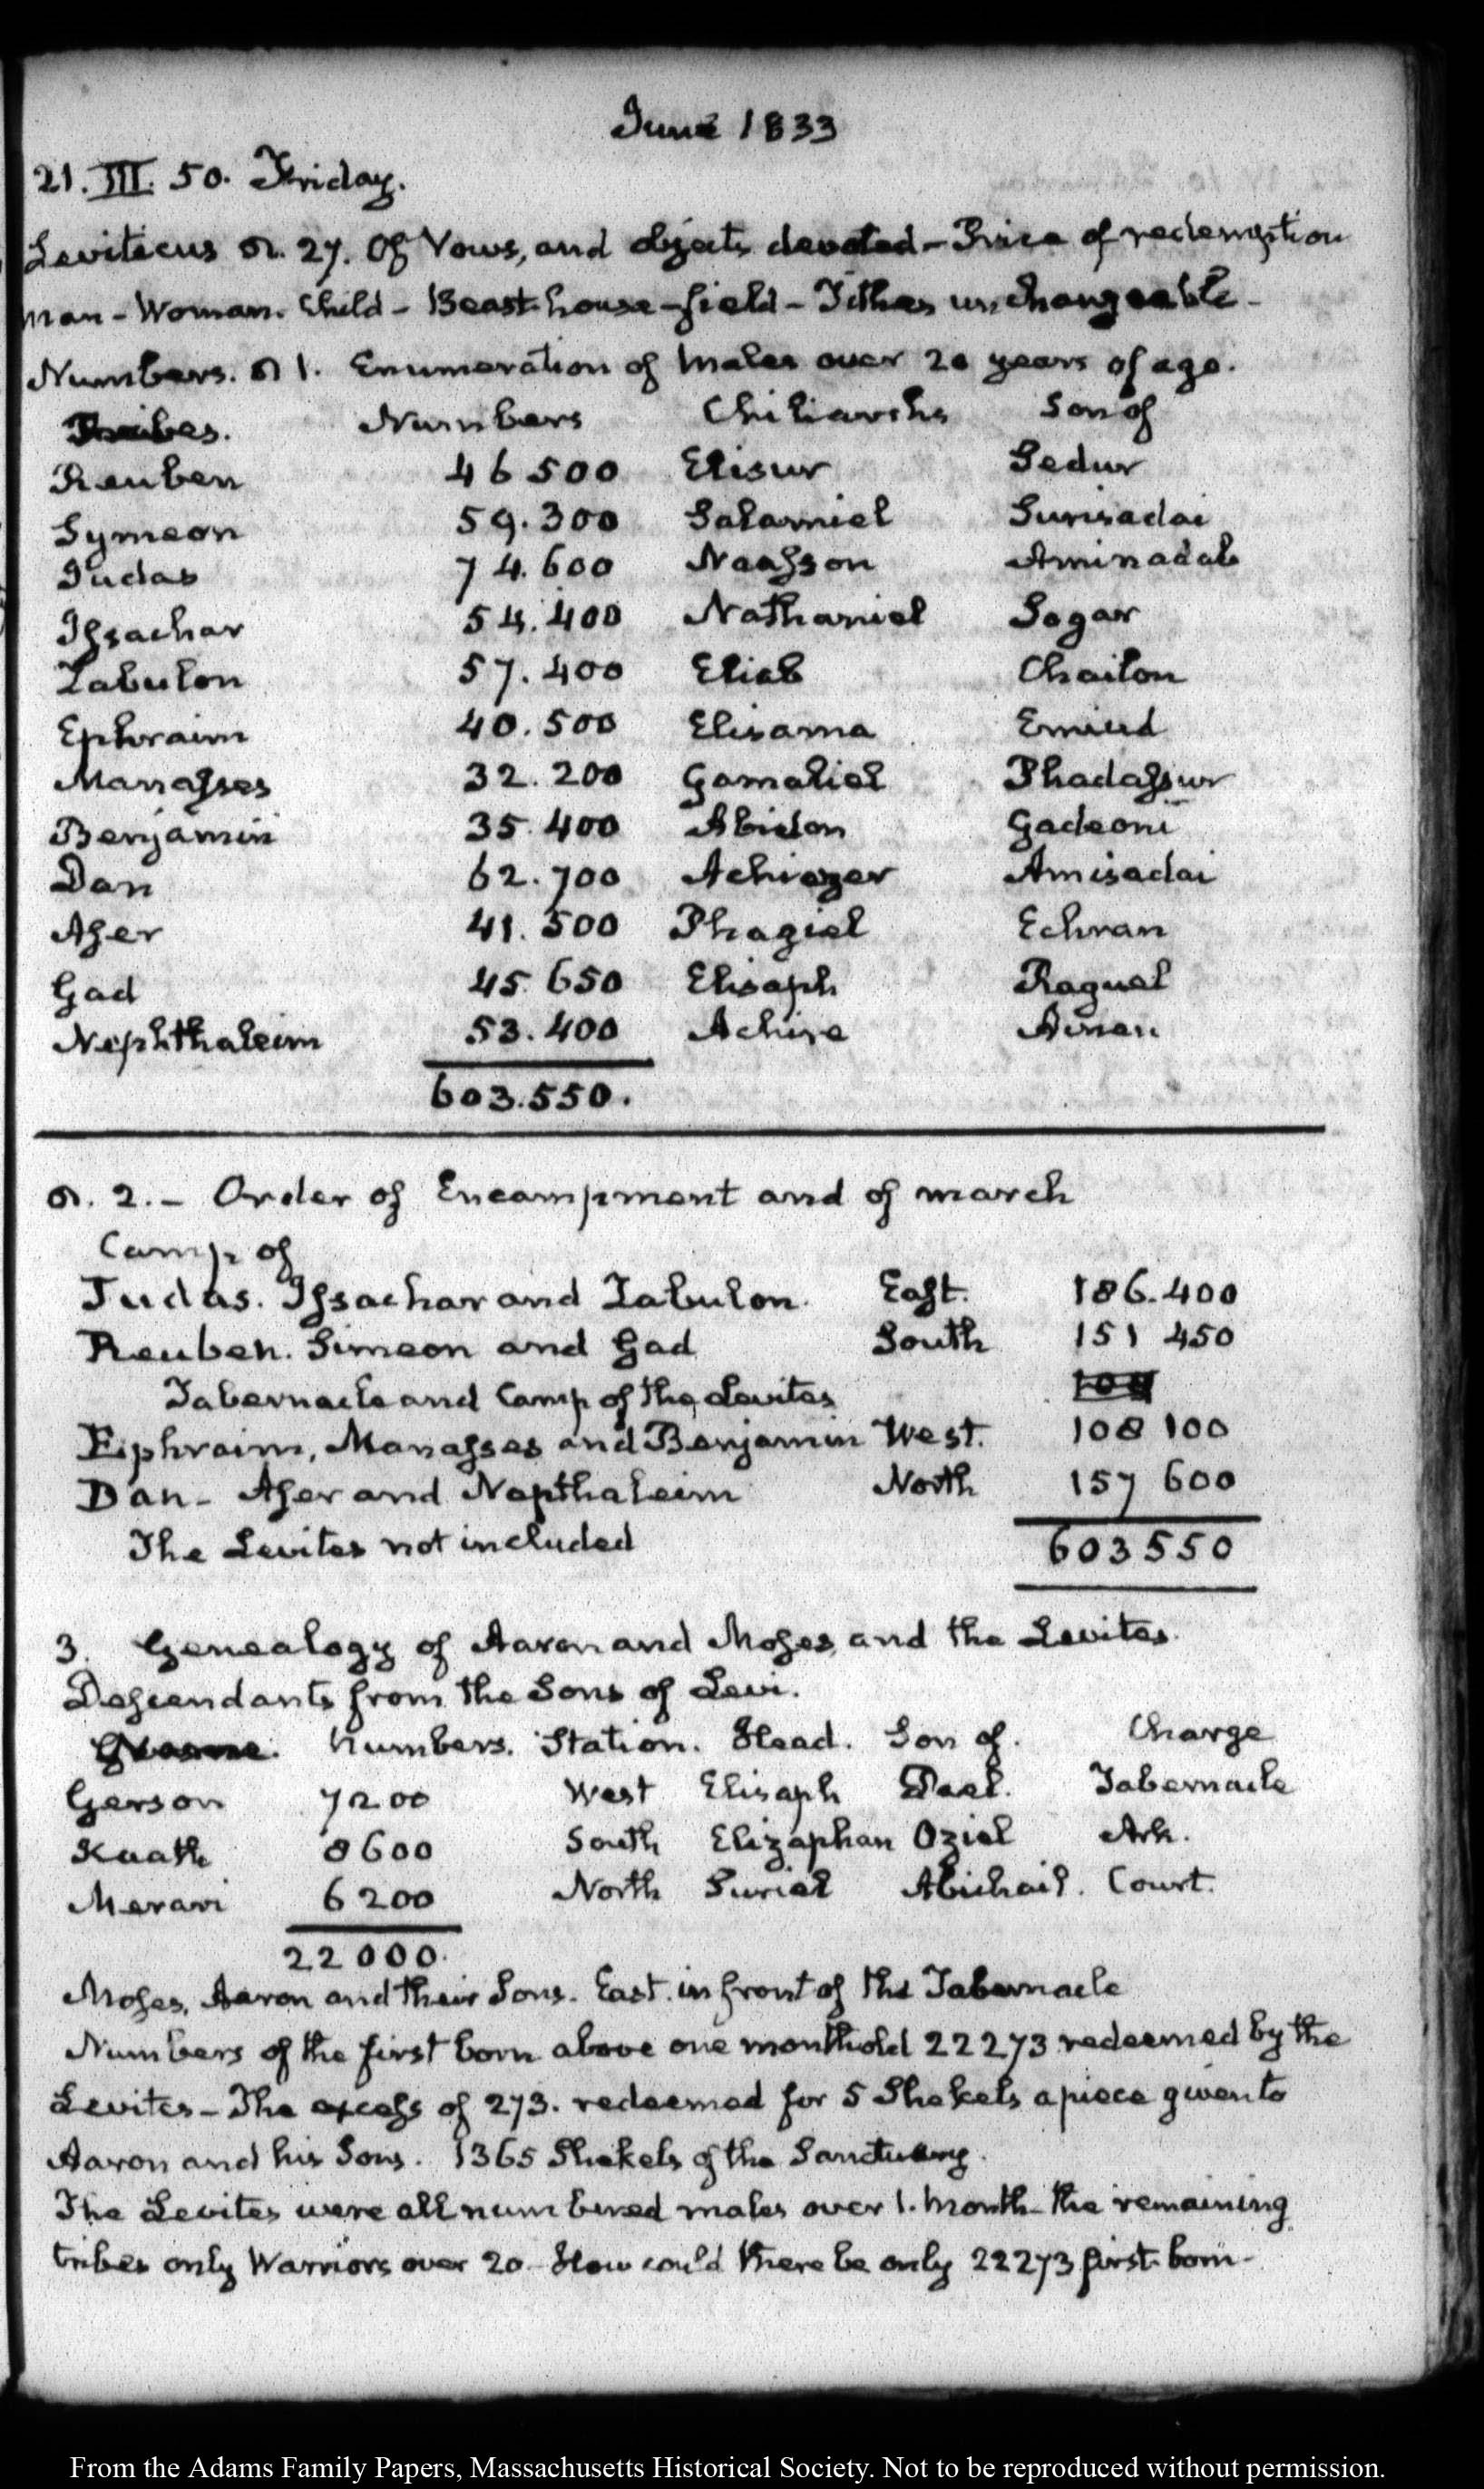 June 1833
21. III. 50. Friday.
Leviticus σ. 27. Of Vows, and objects devoted – Price of redemption
Man – Woman. Child – Beast. house – field – Tithes unchangeable –
Numbers. σ 1. Enumeration of Males over 20 years of age.
Tribes. Numbers Chiliarchs Son of
Reuben 46 500 Elisur Sedur
Symeon 59.300 Salamiel Surisadai
Judas 74.600 Naasson Aminadab
Issachar 54.400 Nathaniel Sogar
Zabulon 57.400 Eliab Chailon
Ephraim 40.500 Elisama Emiud
Manasses 32.200 Gamaliel Phadassur
Benjamin 35.400 Abidon Gadeoni
Dan 62.700 Achiezer Amisadai
Aser 41.500 Phagiel Echran
Gad 45 650 Elisaph Raguel
Nephthaleim 53.400 Achire Ainan
603.550.
σ. 2. – Order of Encampment and of march
Camp of
Judas. Issachar and Zabulon. East. 186.400
Reuben. Simeon and Gad South 151 450
Tabernacle and Camp of the Levites 108
Ephraim, Manasses and Benjamin West. 108 100
Dan – Aser and Nepthaleim North 157 600
The Levites not included 603550
3. Genealogy of Aaron and Moses, and the Levites.
Descendants from the Sons of Levi.
Numbers. Station. Head. Son of. Charge
Gerson 7200 West Elisaph Dael. Tabernacle
Kaath 8600 South Elizaphan Oziel Ark.
Merari 6200 North Suriel Abichail. Court.
22000.
Moses, Aaron and their Sons. East. in front of the Tabernacle
Numbers of the first born above one month old 22273 redeemed by the
Levites – The excess of 273. redeemed for 5 Shekels apiece given to
Aaron and his Sons. 1365 Shekels of the Sanctuary.
The Levites were all numbered males over 1. Month – the remaining
tribes only Warriors over 20 – How could there be only 22273 first-born –
From the Adams Family Papers, Massachusetts Historical Society. Not to be reproduced without permission.